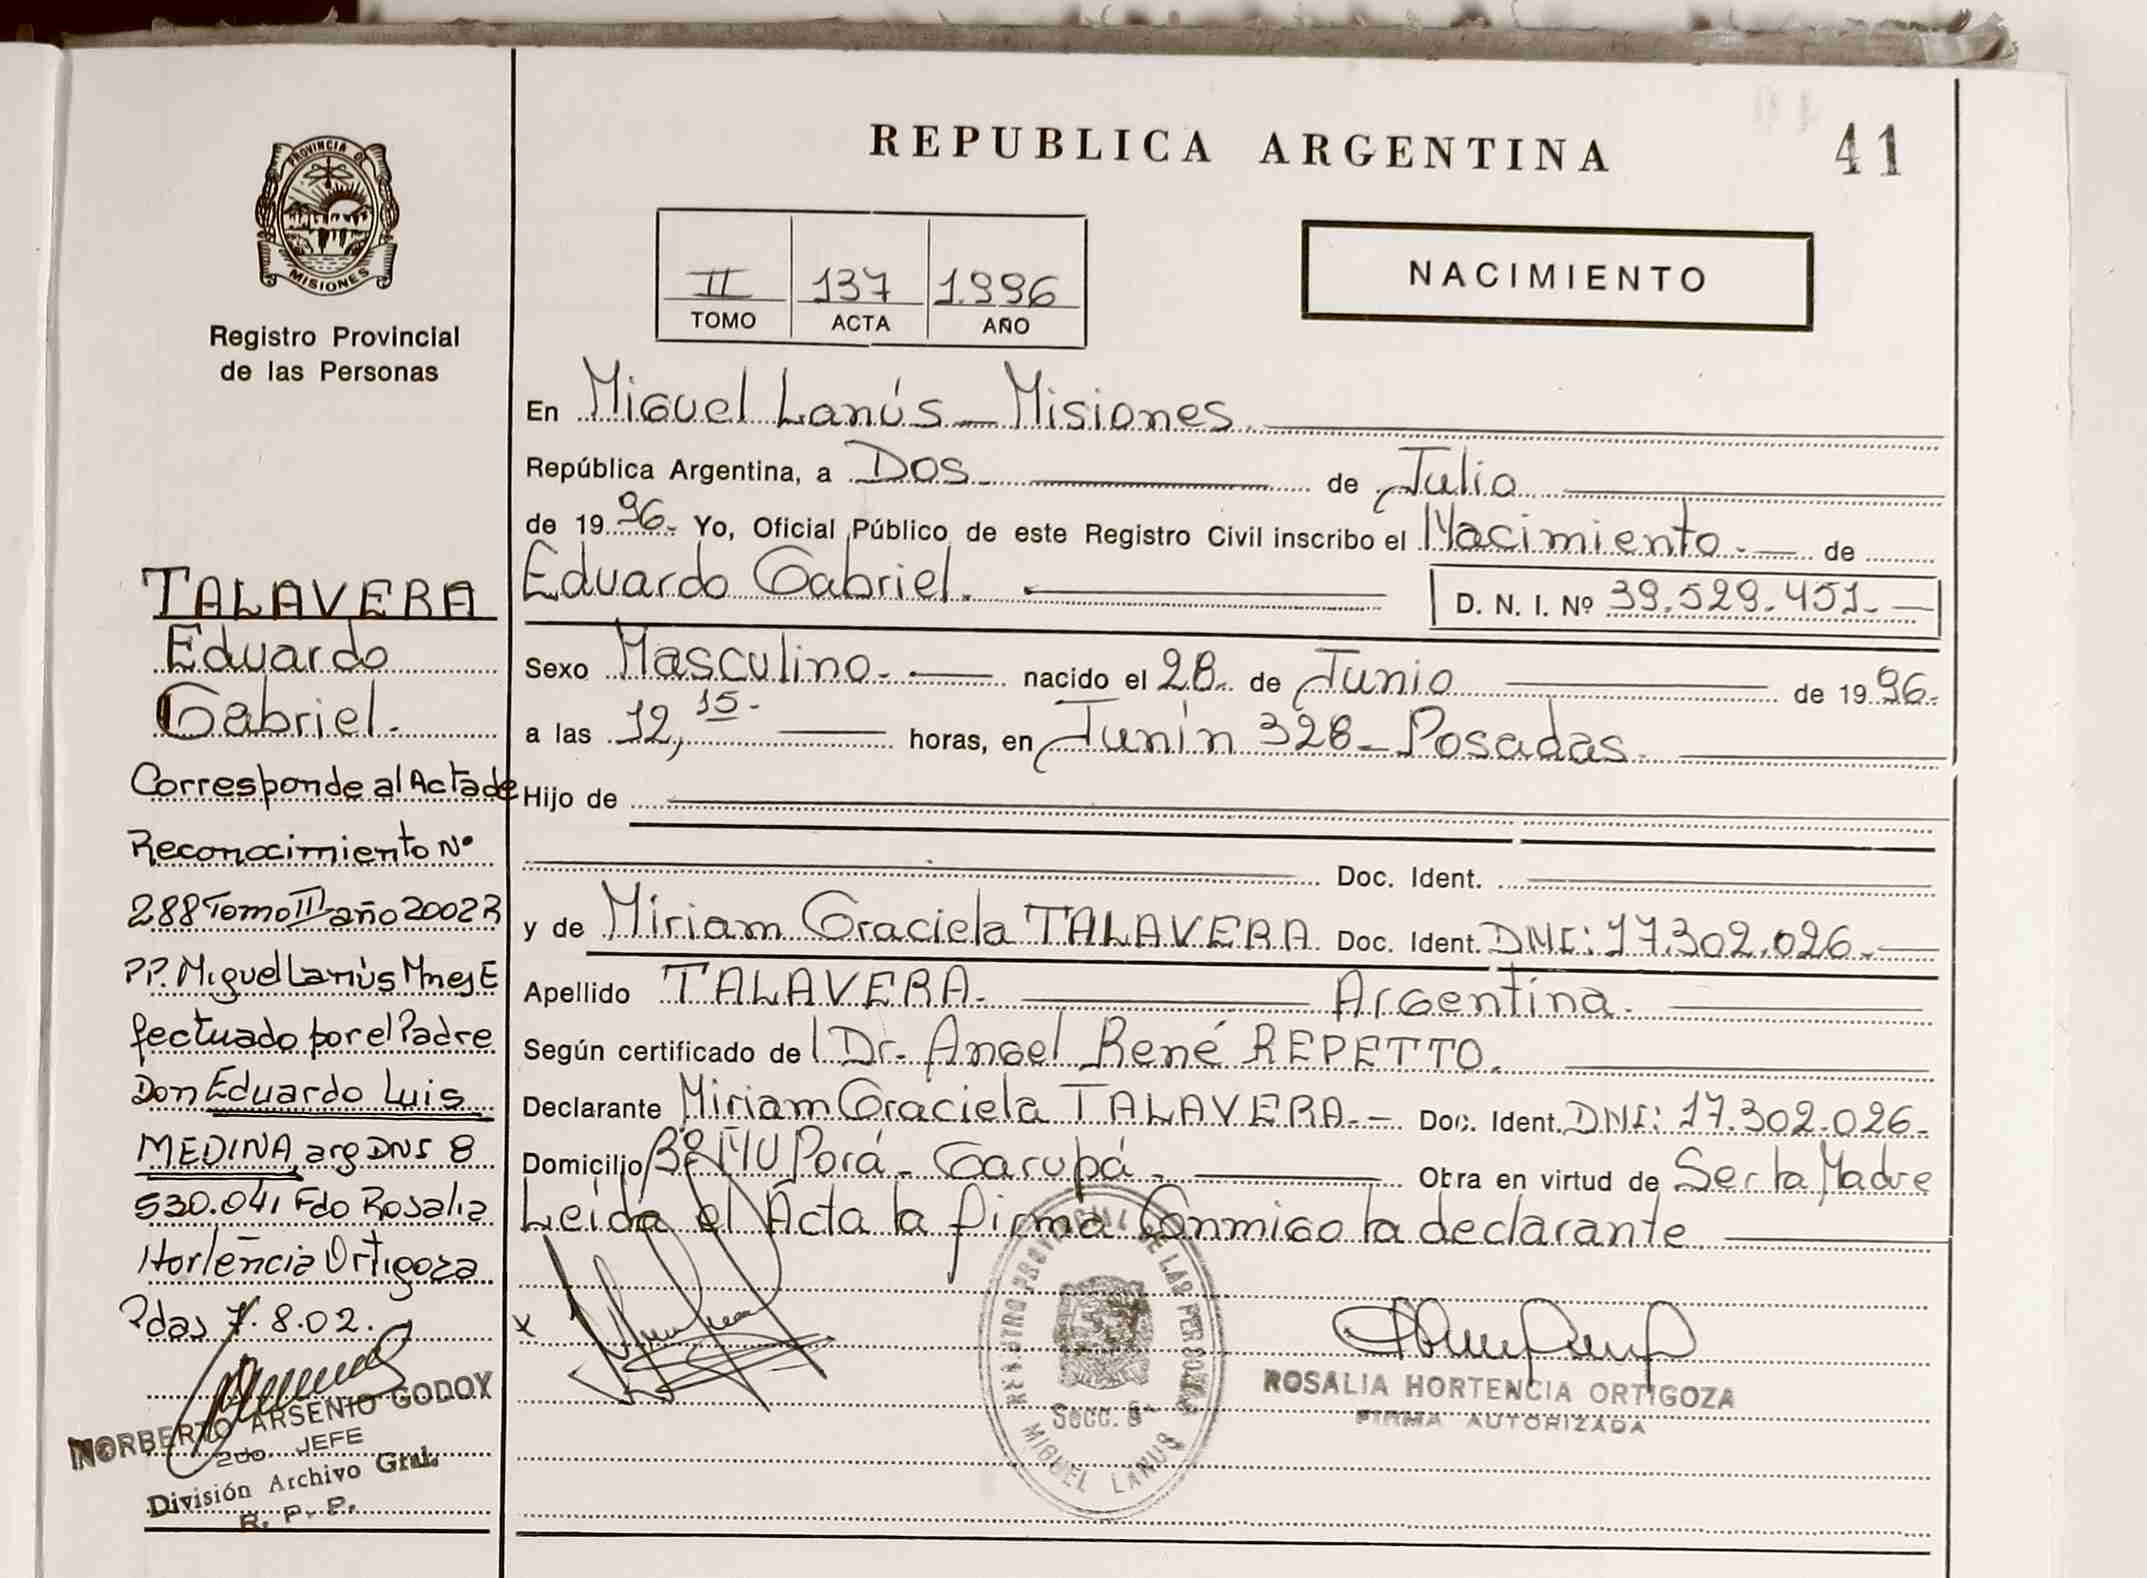 REPUBLICA ARGENTINA
41
PROVINCIA DE
MISIONES
Registro Provincial
de las Personas
II 137 1.996
TOMO ACTA AÑO
NACIMIENTO
En Miguel Lanús - Misiones.
República Argentina, a Dos de Julio
de 19 96. Yo, Oficial Público de este Registro Civil inscribo el Nacimiento. de
Eduardo Gabriel. D. N. I. Nº 39.529.451.
Sexo Masculino. nacido el 28. de Junio de 19 96.
a las 12,15. horas, en Junín 328 - Posadas.
Hijo de
Doc. Ident.
y de Miriam Graciela TALAVERA Doc. Ident. DNI: 17.302.026.
Apellido TALAVERA. Argentina.
Según certificado de l Dr. Angel René REPETTO.
Declarante Miriam Graciela TALAVERA. Doc. Ident. DNI: 17.302.026.
Domicilio Porá - Garupá. Obra en virtud de Ser la Madre
Leída el Acta la firma Conmigo la declarante
x
REGISTRO PROVINCIAL DE LAS PERSONAS
Secc. 8ª
MIGUEL LANUS
ROSALIA HORTENCIA ORTIGOZA
FIRMA AUTORIZADA
TALAVERA
Eduardo
Gabriel.
Corresponde al Acta de
Reconocimiento Nº
288 Tomo III año 2002 R
PP. Miguel Lanús Mnes E
fectuado por el Padre
Don Eduardo Luis
MEDINA, arg DNI 8
530.041 Fdo Rosalia
Hortencia Ortigoza
Pdas 7.8.02.
NORBERTO ARSENIO GODOY
2do. JEFE
División Archivo Gral.
R. P. P.